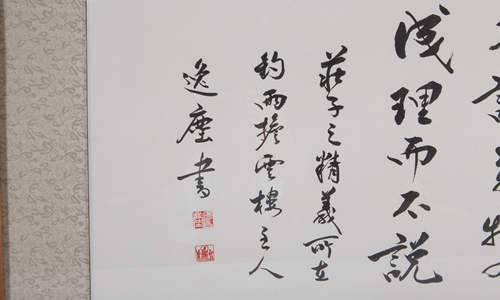 議萬物
成理而不說
莊子之精義所在
釣雨雲樓主人
逸塵書